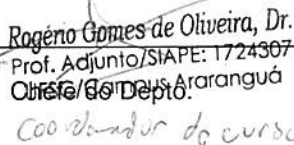 Rogério Gomes de Oliveira, Dr.
Prof. Adjunto/SIAPE: 1724307
UFSC/Campus Araranguá
Chefe do Depto.
Coordenador do curso